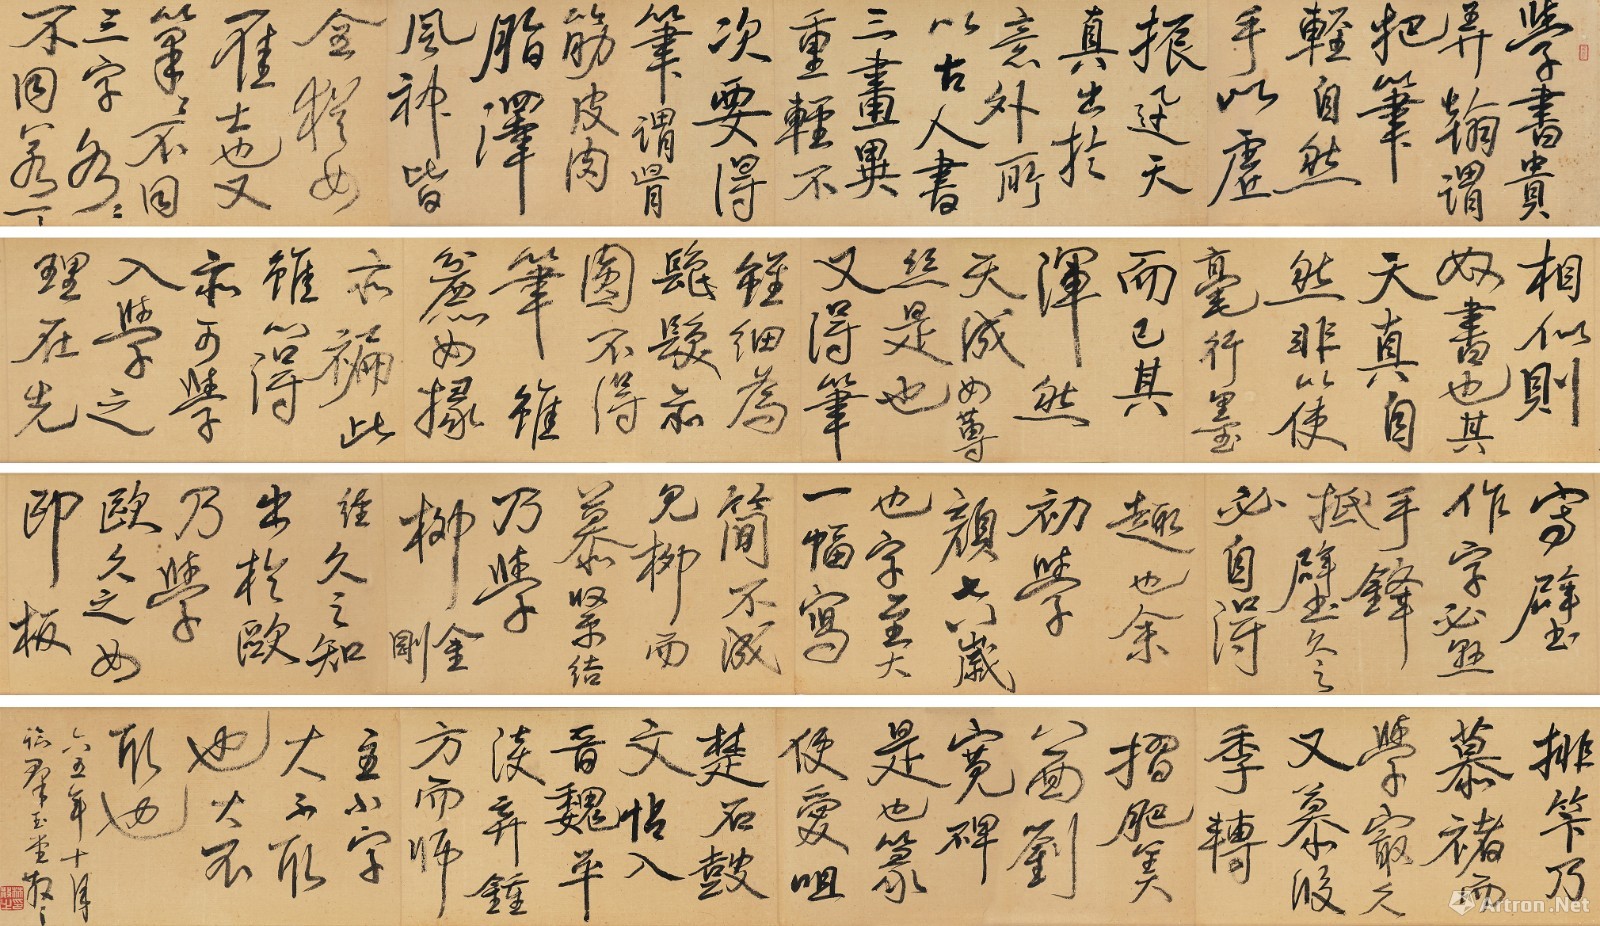 學書貴
弄翰謂
把筆
輕自然
手心虛
振迅天
真出於
意外所
以古人書
三畫異
重輕不
次要得
筆謂骨
筋皮肉
脂澤
風神皆
全猶如
佳士也又
筆筆不同
三字各各
不同若一一
相似則
奴書也其
天真自
然非以使
毫行墨
而已其
渾然
天成如蓴
絲是也
又得筆
雖細為
髭髮亦
圓不得
筆雖
麄如椽
亦褊此
雖心得
亦可學
入學之
理在先
寫壁
作字必懸
手鋒
抵壁久之
必自得
趣也余
初學
顏七八歲
也字至大
一幅寫
簡不成
見柳而
慕緊結
乃學
柳金剛
經久之知
出於歐
乃學
歐久之如
印板
排竿乃
慕褚而
學最久
又慕段
季轉
摺肥美
八面劉
寬碑
是也篆
便愛咀
楚石鼓
文帖入
晉魏平
淡棄鍾
方而師
主小字
大不取
也大不
取也
六五年十月
臨群玉堂散之
Artron.Net